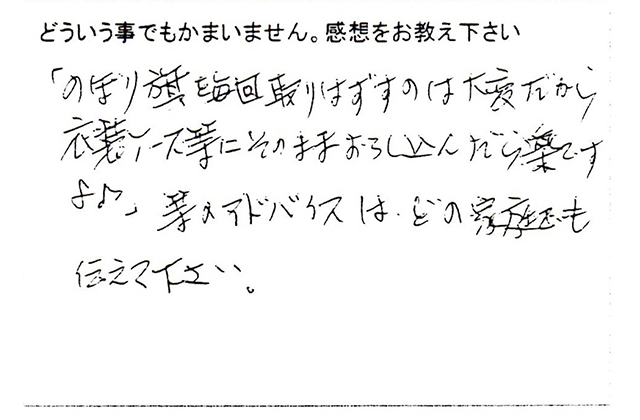 どういう事でもかまいません。感想をお教え下さい
「のぼり旗を毎回取りはずすのは大変だから
衣装ケース等にそのままおろし込んだら楽です
よ♪」等のアドバイスは、どの家庭にも
伝えて下さい。